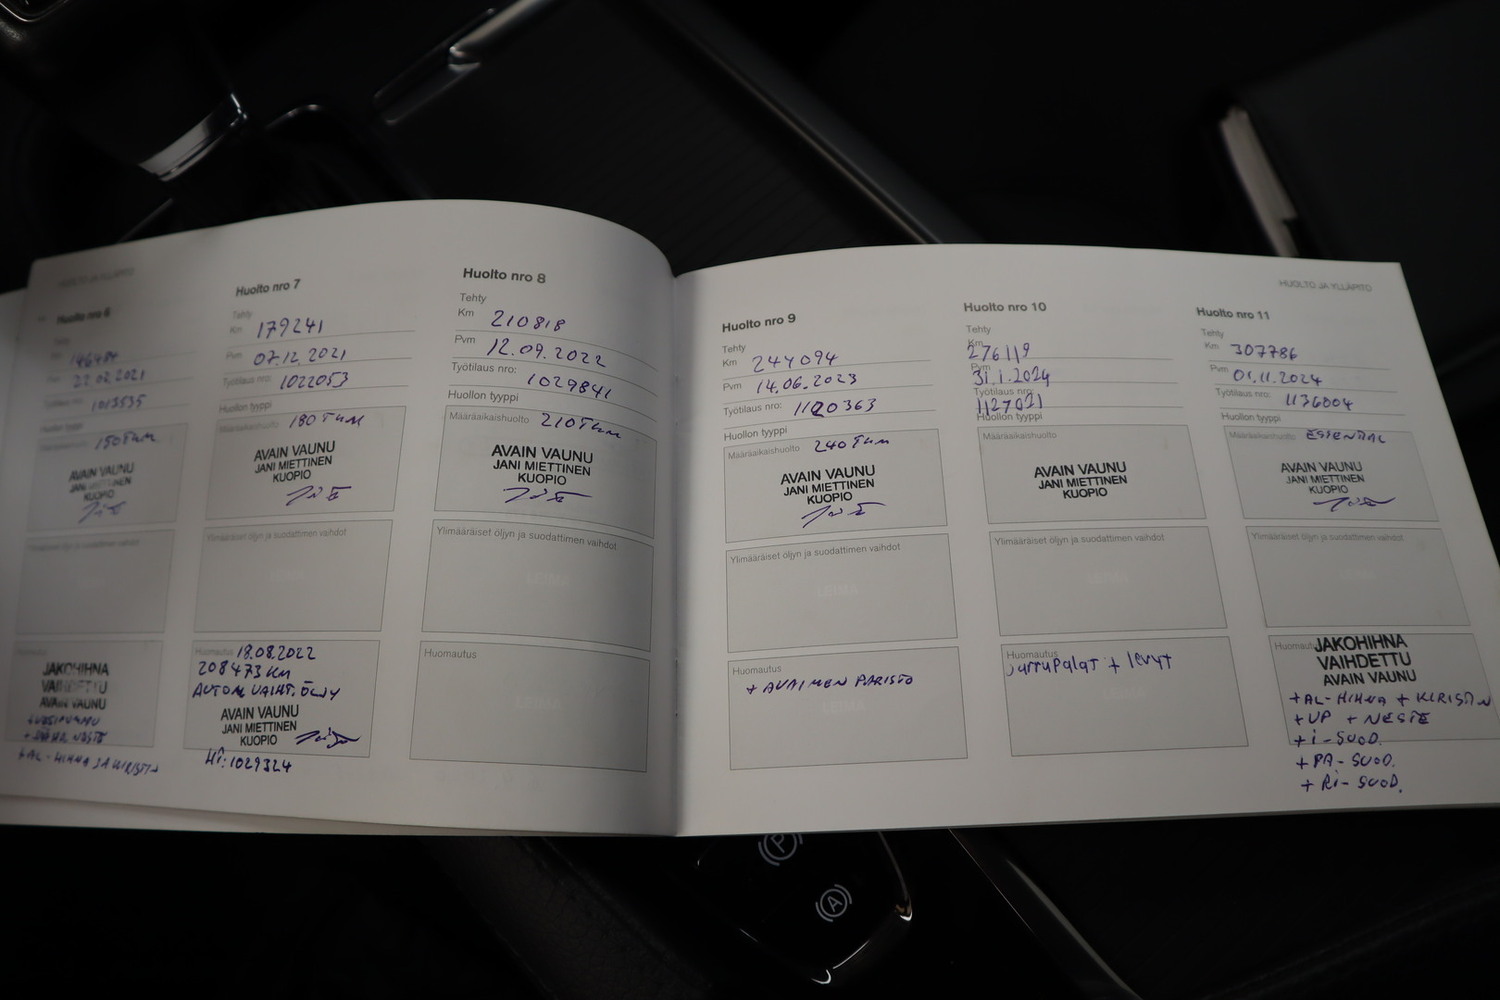 HUOLTO JA YLLÄPITO
Huolto nro 6
Tehty
Km 146484
Pvm 22.02.2021
Työtilaus nro: 1013535
Huollon tyyppi
150 TKM
AVAIN VAUNU
JANI MIETTINEN
KUOPIO
Ylimääräiset öljyn ja suodattimen vaihdot
Huomautus
JAKOHIHNA
VAIHDETTU
AVAIN VAUNU
+ AL-HIHNA JA KIRISTIN
Huolto nro 7
Tehty
Km 179241
Pvm 07.12.2021
Työtilaus nro: 1022053
Huollon tyyppi
Määräaikaishuolto 180 TKM
AVAIN VAUNU
JANI MIETTINEN
KUOPIO
Ylimääräiset öljyn ja suodattimen vaihdot
LEIMA
Huomautus 18.08.2022
208473 KM
AUTOM. VAIHT. ÖLJY
AVAIN VAUNU
JANI MIETTINEN
KUOPIO
1029324
Huolto nro 8
Tehty
Km 210818
Pvm 12.09.2022
Työtilaus nro: 1029841
Huollon tyyppi
Määräaikaishuolto 210 TKM
AVAIN VAUNU
JANI MIETTINEN
KUOPIO
Ylimääräiset öljyn ja suodattimen vaihdot
LEIMA
Huomautus
Huolto nro 9
Tehty
Km 244094
Pvm 14.06.2023
Työtilaus nro: 1120363
Huollon tyyppi
Määräaikaishuolto 240 TKM
AVAIN VAUNU
JANI MIETTINEN
KUOPIO
Ylimääräiset öljyn ja suodattimen vaihdot
LEIMA
Huomautus
+ AVAIMEN PARISTO
LEIMA
HUOLTO JA YLLÄPITO
Huolto nro 10
Tehty
Km 276119
Pvm 31.1.2024
Työtilaus nro: 1127021
Huollon tyyppi
Määräaikaishuolto
AVAIN VAUNU
JANI MIETTINEN
KUOPIO
Ylimääräiset öljyn ja suodattimen vaihdot
LEIMA
Huomautus
jarrupalat + levyt
LEIMA
Huolto nro 11
Tehty
Km 307786
Pvm 01.11.2024
Työtilaus nro: 1136004
Huollon tyyppi
Määräaikaishuolto ESSENTIAL
AVAIN VAUNU
JANI MIETTINEN
KUOPIO
Ylimääräiset öljyn ja suodattimen vaihdot
LEIMA
JAKOHIHNA
VAIHDETTU
AVAIN VAUNU
+ AL-HIHNA + KIRISTIN
+ VP + NESTE
+ i-SUOD.
+ PA-SUOD.
+ Ri-SUOD.
P
A